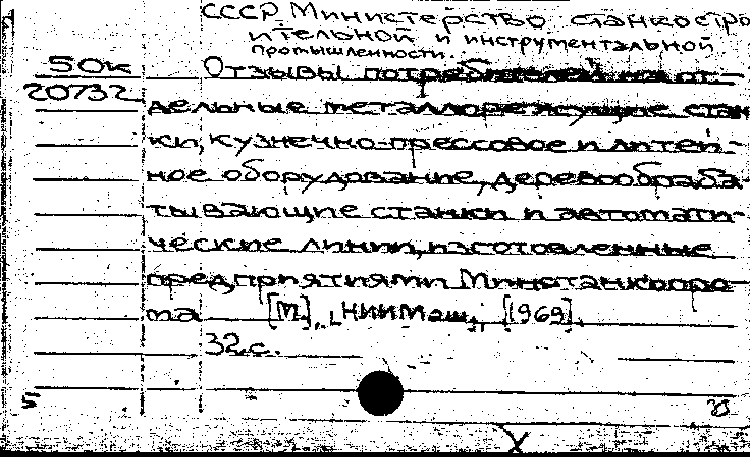 СССР Министерство станкостро
ительной и инструментальной
промышленности.
50к Отзывы потребителей на от-
20732 дельные металлорежущие стан
ки, кузнечно-прессовое и литей-
ное оборудование, деревообраба-
тывающие станки и автомати-
ческие линии, изготовленные
предприятиями Минстанкопро-
ма [М.], „НИИМаш„, [1969].
32 с.
5